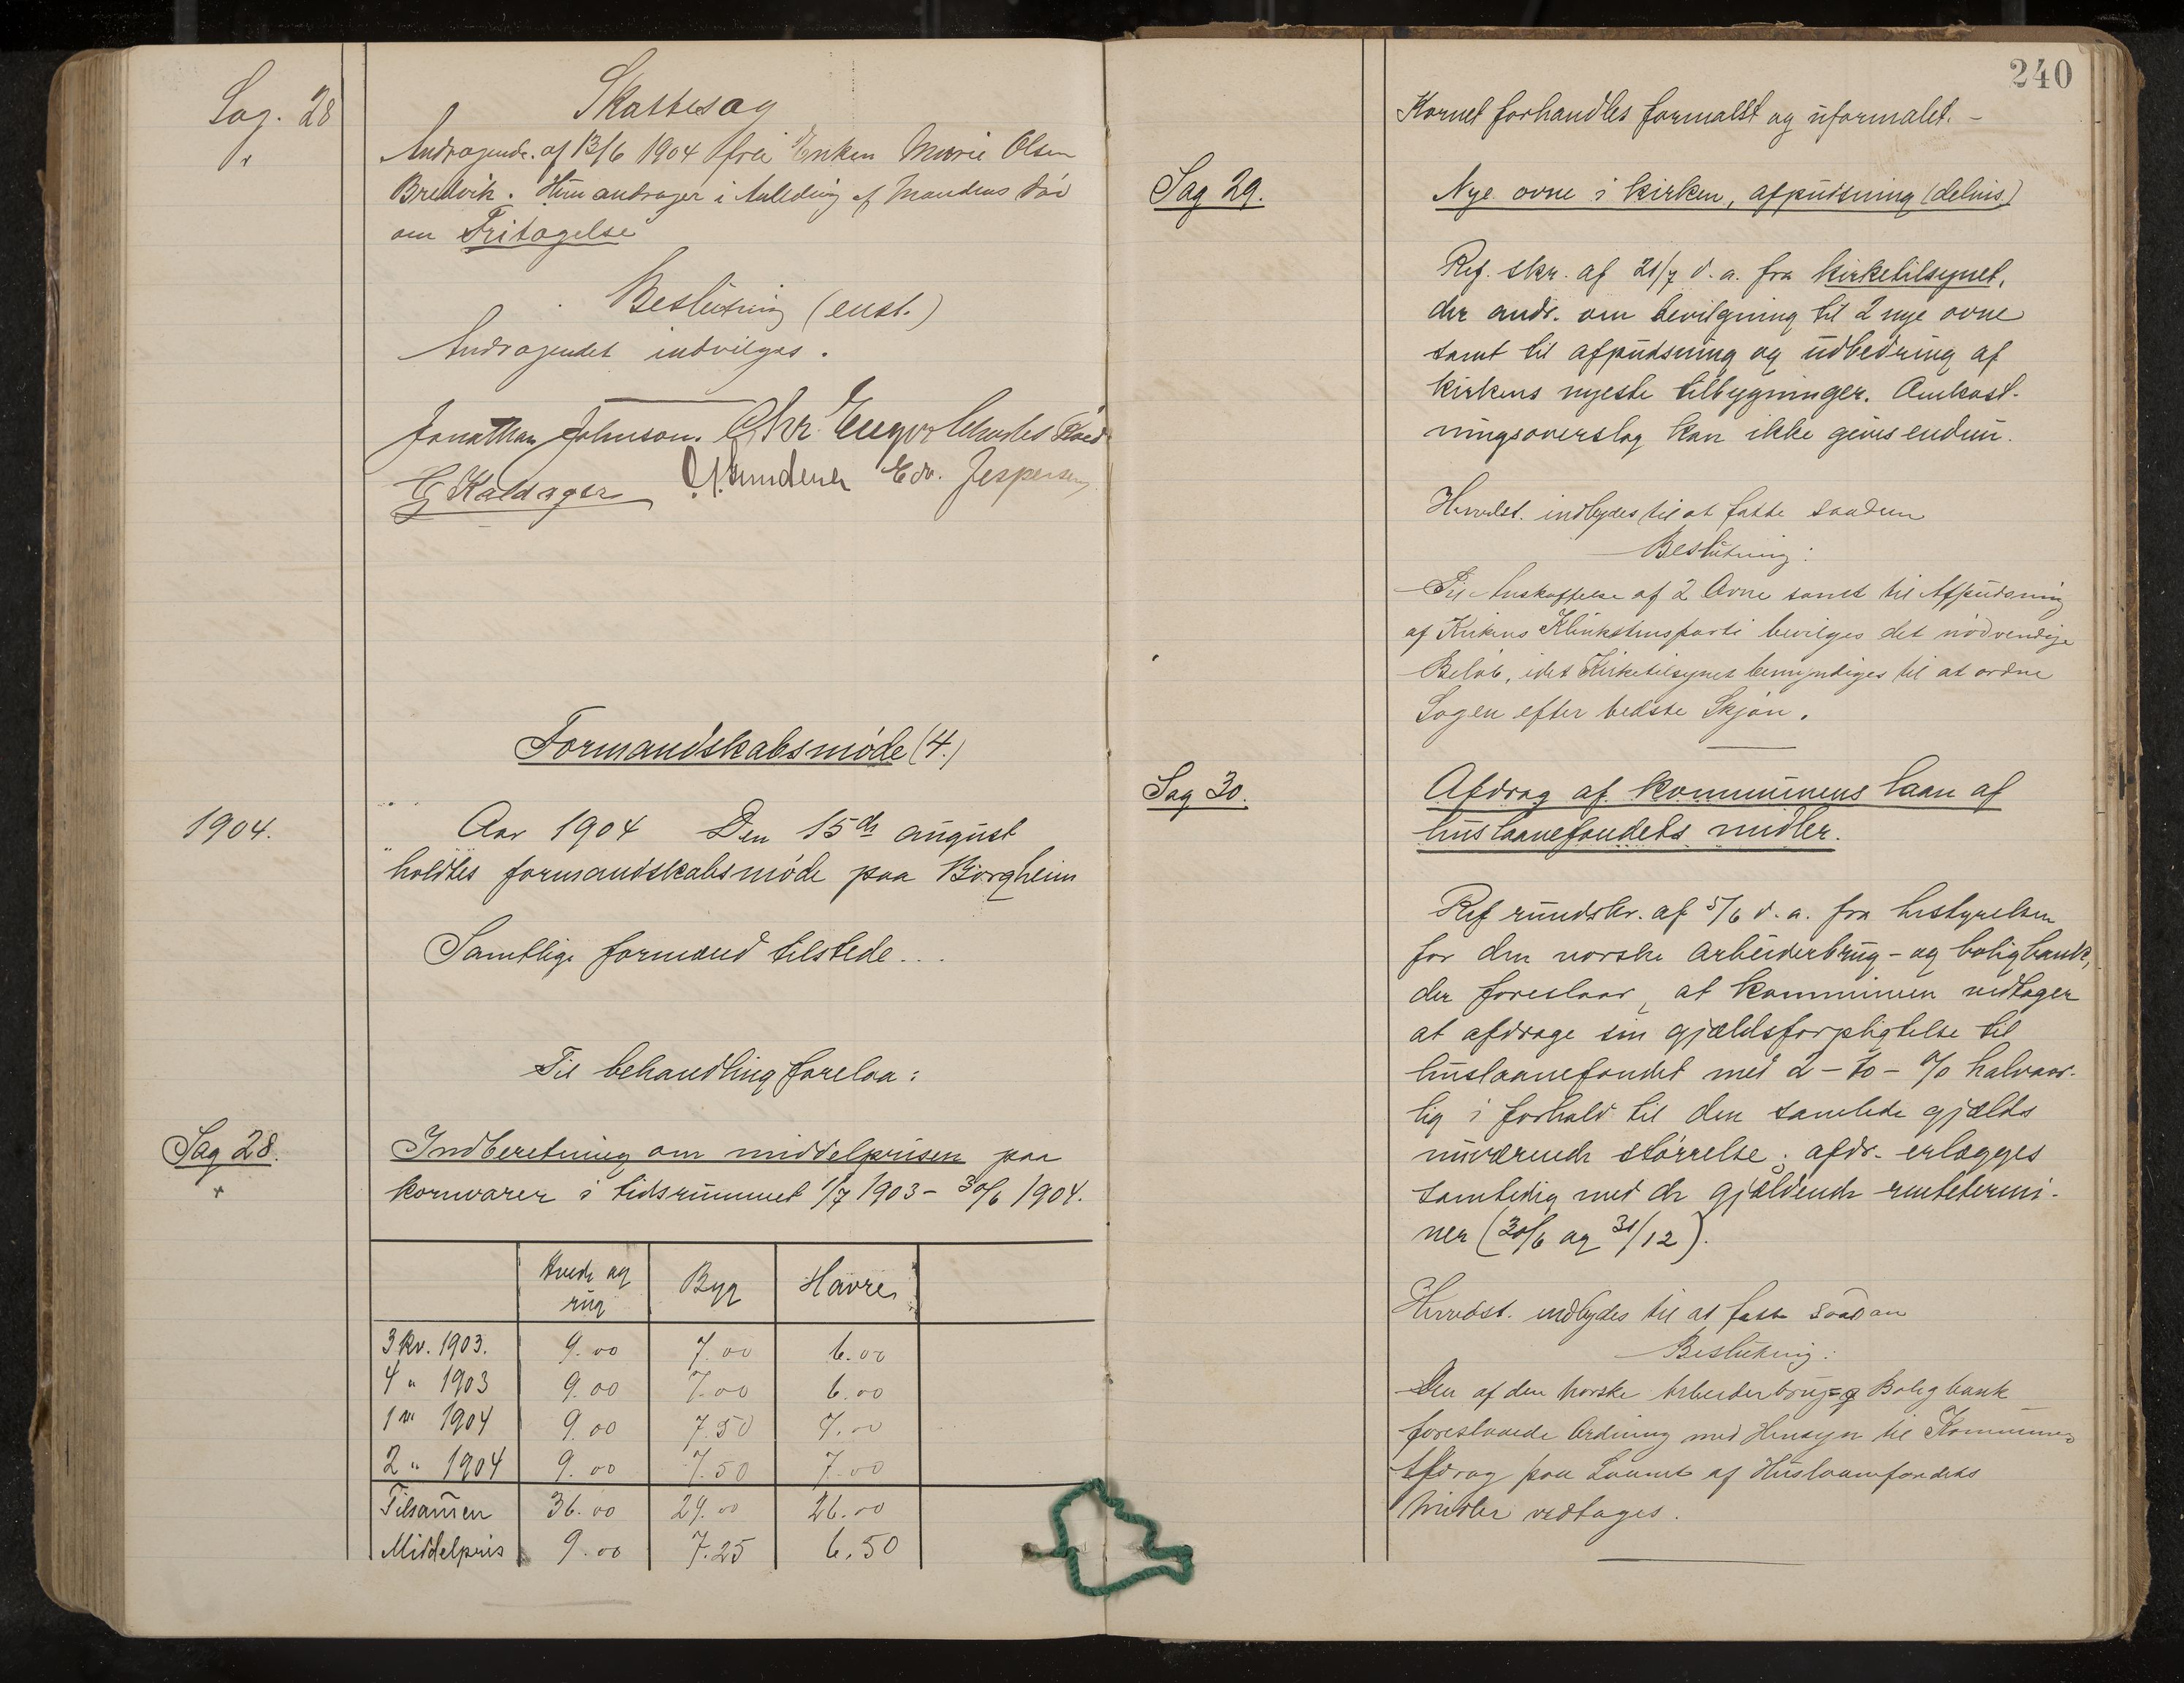 Sag. 28
Skattesag
Andragende. af 13/6 1904 fra Enken Marie Olsen
Bredvik. Hun andrager i Anledning af Mandens Død
om Fritagelse
Beslutning (enst.)
Andragendet indvilges.
Jonathan Johnson. Chr Enger
G Kaldager Edv. Jespersen
Formandskabsmøde (4.)
1904.
Aar 1904 Den 15de august
holdtes formandskabsmøde paa Borgheim
Samtlige formænd tilstede...
Til behandling forelaa:
Sag 28.
Indberetning om middelprisen paa
kornvarer i tidsrummet 1/7 1903 - 30/6 1904.
Hvede og rug Byg Havre
3 kv. 1903. 9.00 7.00 6.00
4 " 1903 9.00 7.00 6.00
1 " 1904 9.00 7.50 7.00
2 " 1904 9.00 7.50 7.00
Tilsam̄en 36.00 29.00 26.00
Middelpris 9.00 7.25 6.50
240
Kornet forhandles formalt og uformalet. -
Sag 29.
Nye ovne i kirken, afpudsning (delvis)
Ref. skr. af 21/7 d. a. fra kirketilsynet,
der andr. om bevilgning til 2 nye ovne
samt til afpudsning og udbedring af
kirkens nyeste tilbygninger. Omkost-
ningsoverslag kan ikke gives endnu.
Herredst. indbydes til at fatte saadan
Beslutning:
Til Anskaffelse af 2 Ovne samt til Afpudsning
af Kirkens Klinkstensparti bevilges det nødvendige
Beløb, idet Kirketilsynet bemyndiges til at ordne
Sagen efter bedste Skjøn.
Sag 30.
Afdrag af kommunens laan af
huslaanefondets midler.
Ref rundskr. af 5/6 d. a. fra bestyrelsen
for den norske arbeiderbrug- og boligbank,
der foreslaar, at kommunen vedtager
at afdrage sin gjældsforpligtelse til
huslaanefondet med 2 - to - % halvaar-
lig i forhold til den samlede gjælds
nuværende størrelse; afdr. erlægges
samtidig med de gjældende rentetermi-
ner (30/6 og 31/12).
Herredst. indbydes til at fatte saadan
Beslutning:
Den af den norske Arbeiderbrug- og Boligbank
foreslaaede Ordning med Hensyn til Kommunens
Afdrag paa Laanet af Huslaanefondets
Midler vedtages.